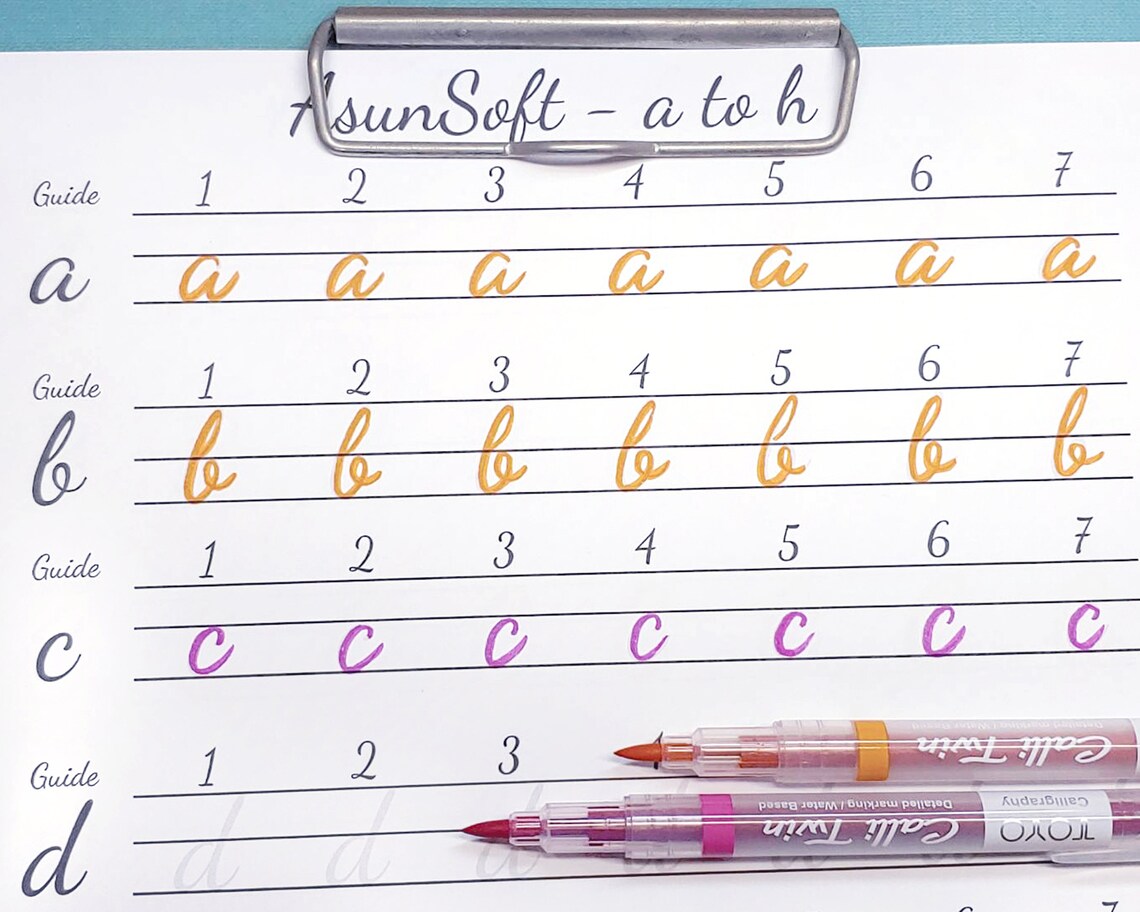 AsunSoft - a to h
Guide 1 2 3 4 5 6 7
a a a a a a a a
Guide 1 2 3 4 5 6 7
b b b b b b b b
Guide 1 2 3 4 5 6 7
c c c c c c c c
Guide 1 2 3
d d d d d d
Calli Twin
Detailed marking / Water Based
Calli Twin
TOYO
Calligraphy
7